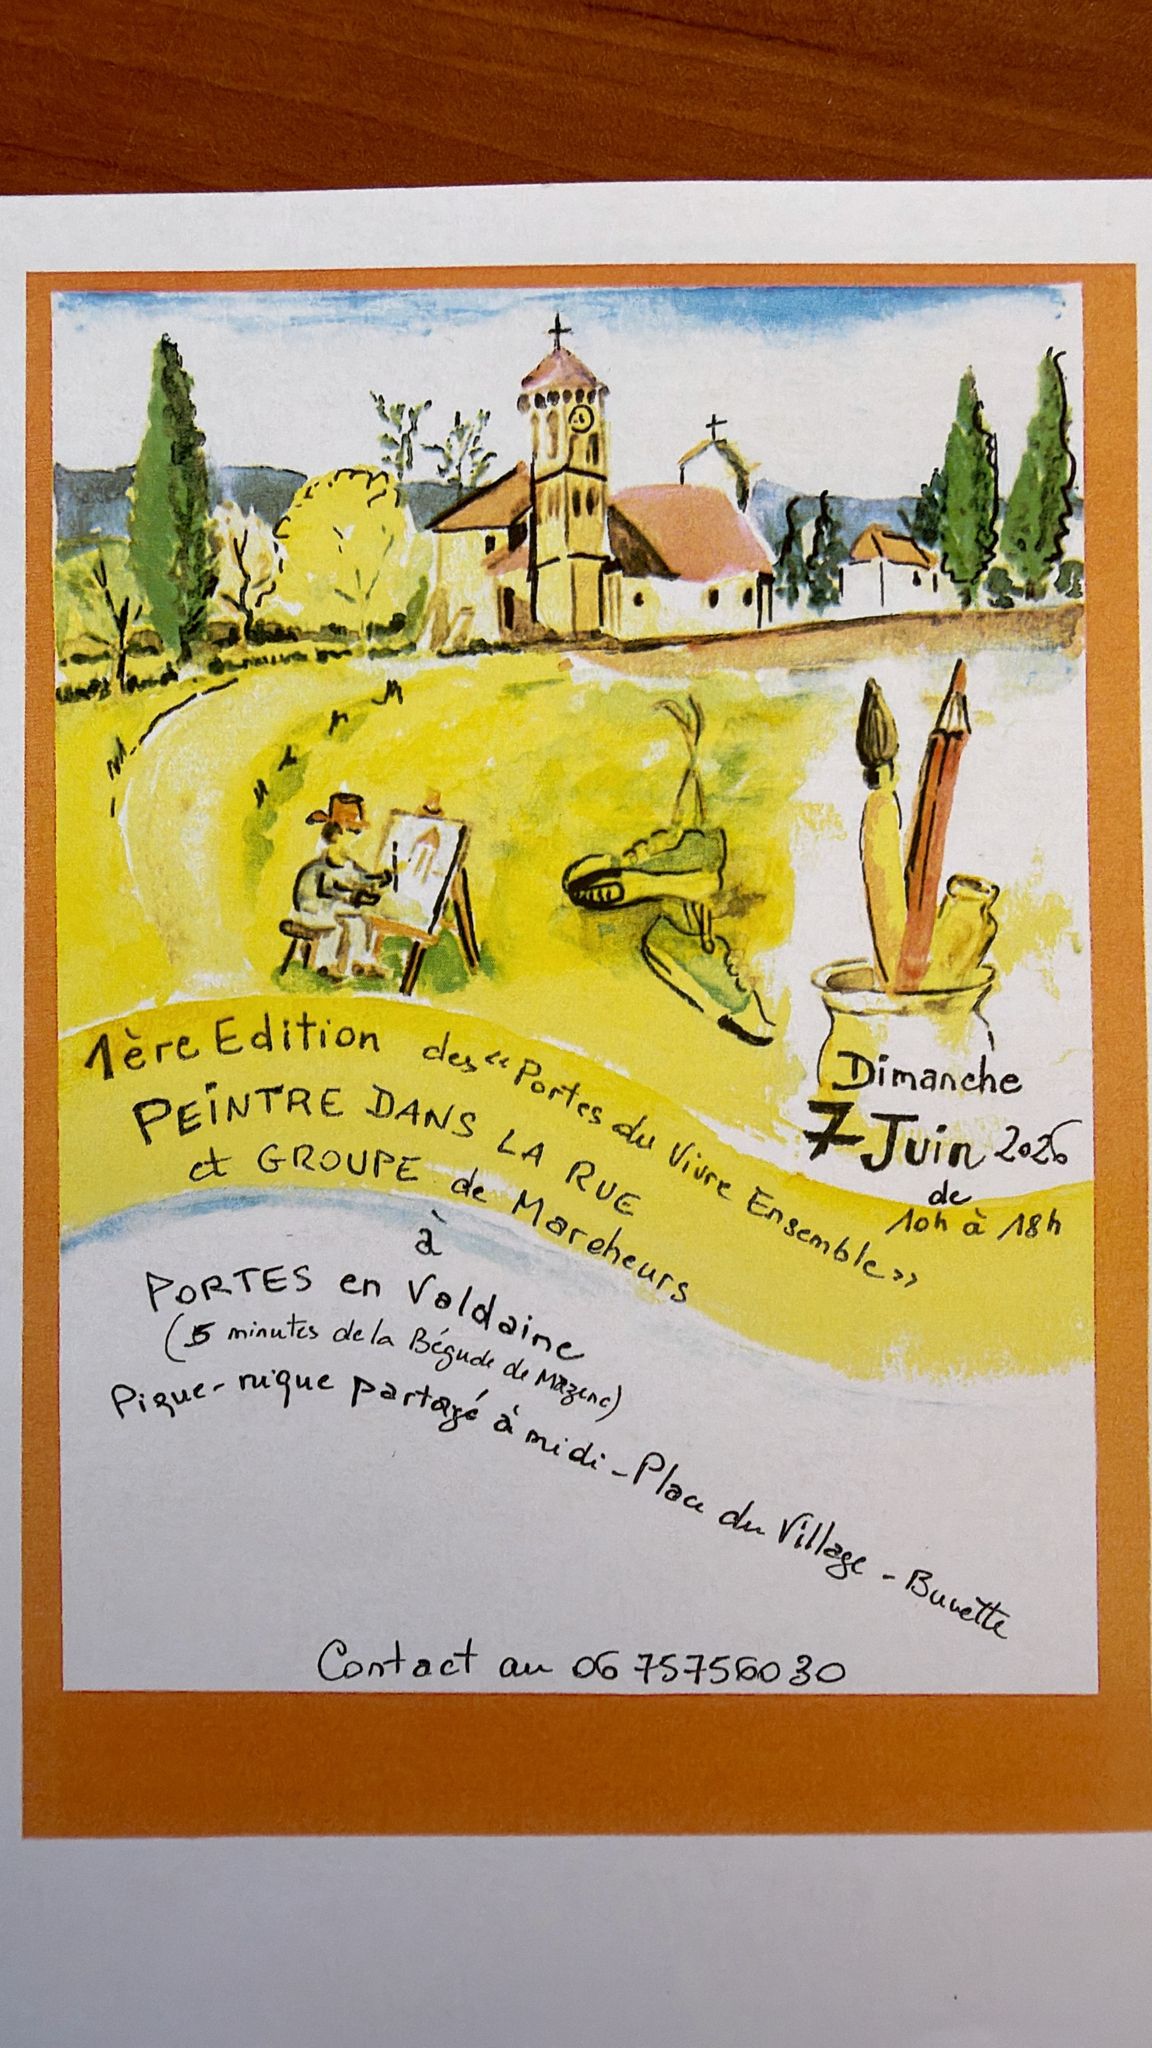 1ère Edition des "Portes du Vivre Ensemble"
PEINTRE DANS LA RUE
et GROUPE de Marcheurs
à
PORTES en Valdaine
(5 minutes de la Bégude de Mazenc)
Pique-nique partagé à midi - Place du Village - Buvette
Dimanche
7 Juin 2026
de
10h à 18h
Contact au 06 75756030